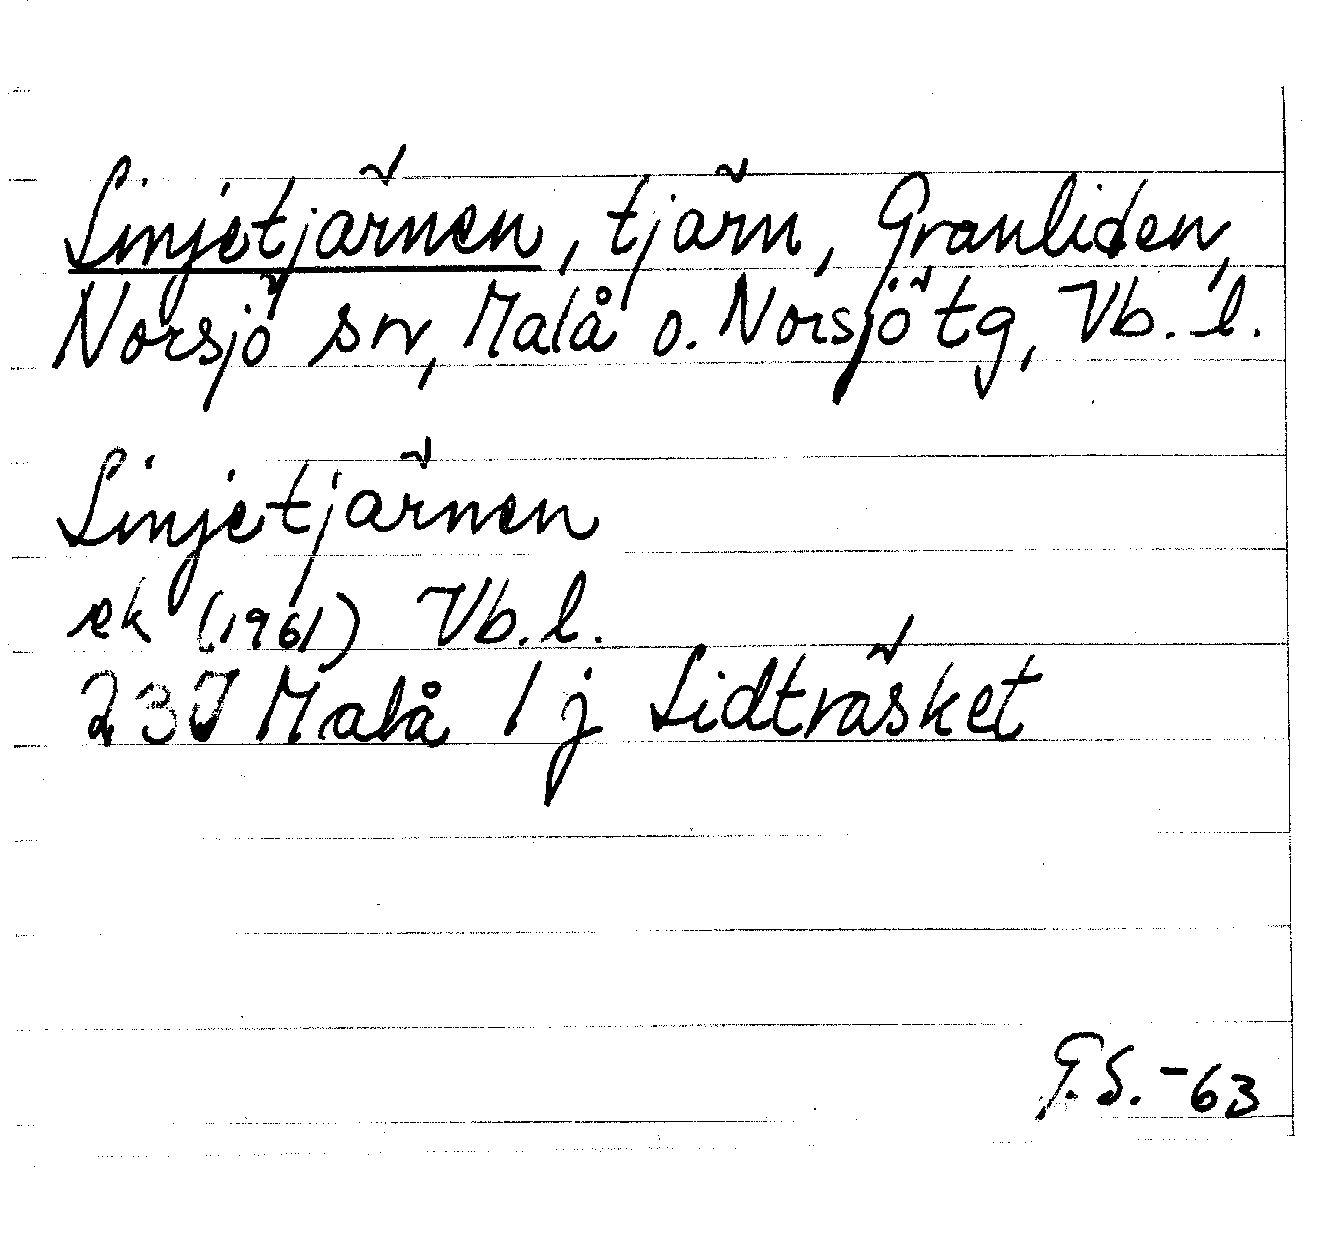 Linjetjärnen, tjärn, Granliden,
Norsjö sn, Malå o. Norsjö tg, Vb. l.
Linjetjärnen
ek (1961) Vb. l.
23J Malå 1 j Lidträsket
G.S. -63